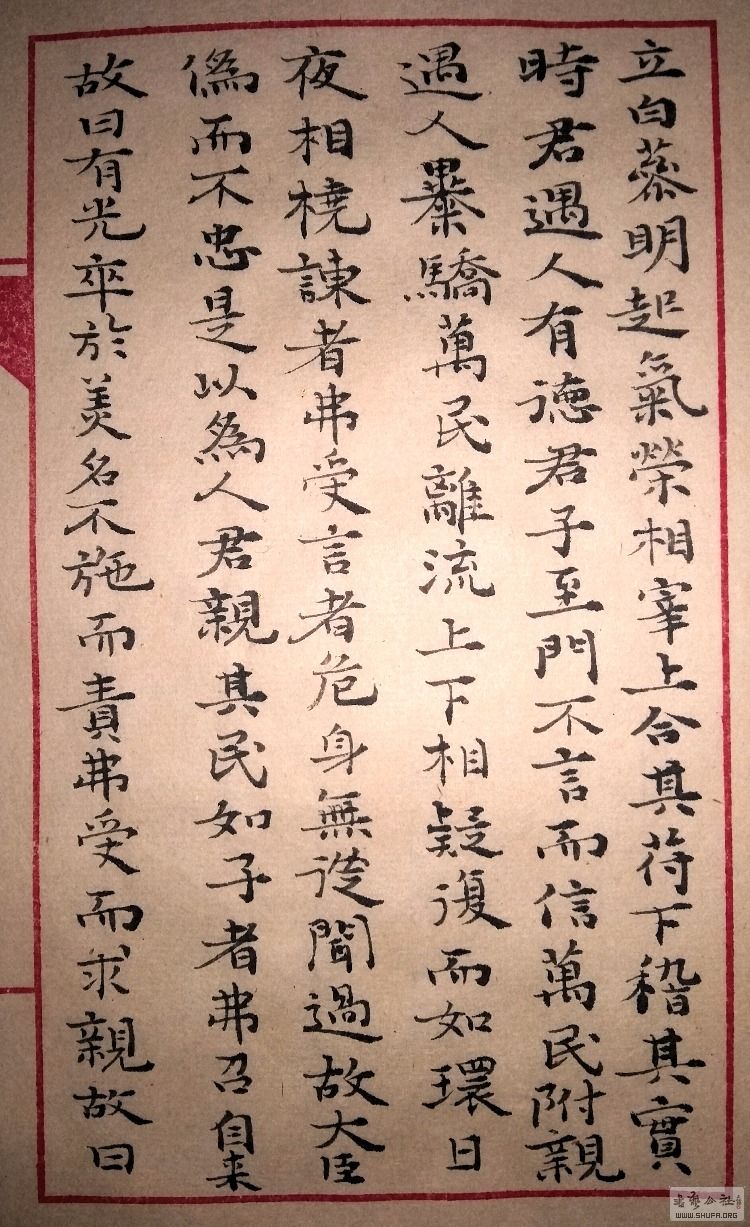 立白蔘明起氣榮相宰上合其符下稽其實
時君遇人有德君子至門不言而信萬民附親
遇人暴驕萬民離流上下相疑復而如環日
夜相橈諫者弗受言者危身無從聞過故大臣
偽而不忠是以為人君親其民如子者弗召自来
故曰有光卒於美名不施而責弗受而求親故曰
WWW.SHUFA.ORG